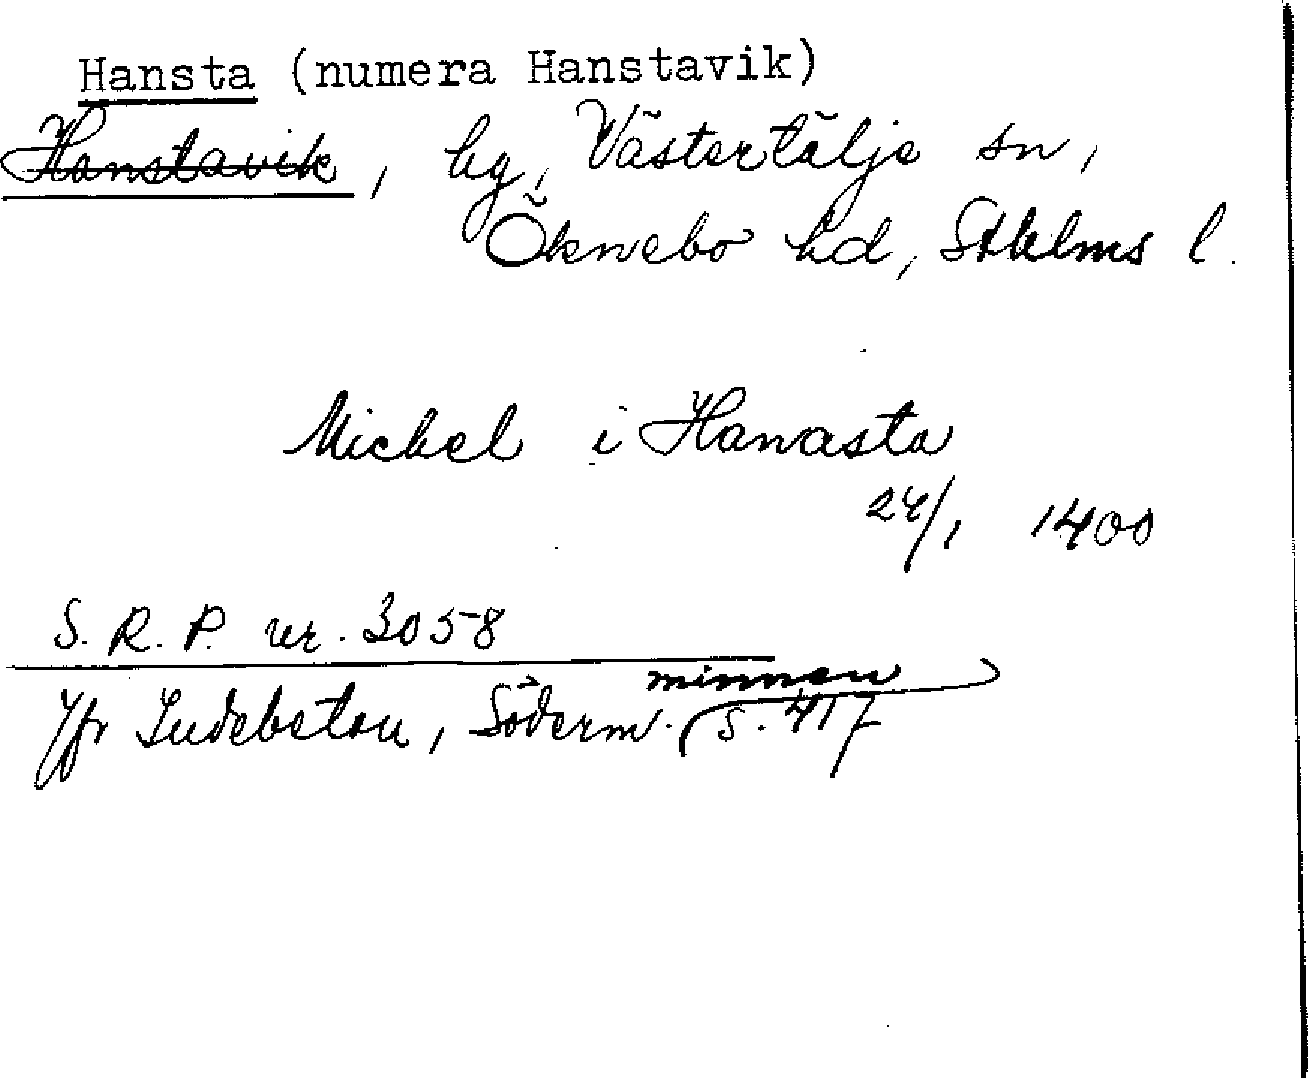 Hansta (numera Hanstavik)
Hanstavik, hg, Västertälje sn,
Öknebo hd, Sthlms l.
Michel i Hanasta
24/1 1400
S. R. P. nr. 3058
minnen
Jfr Indebetou, Söderm. s. 417